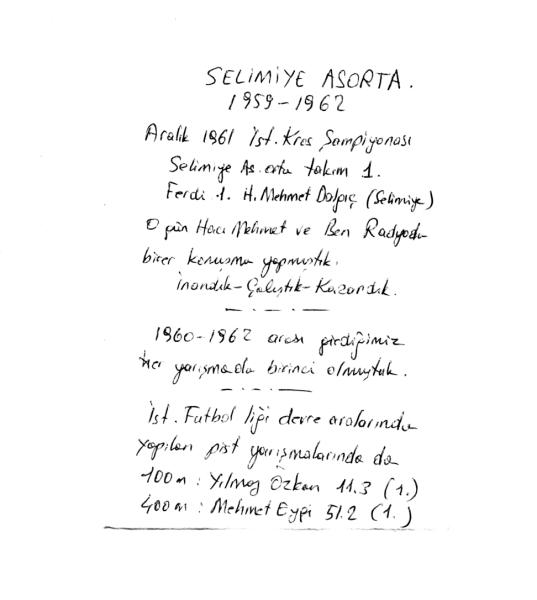 SELİMİYE ASORTA.
1959-1962
Aralık 1961 İst. Kros Şampiyonası
Selimiye As. orta takım 1.
Ferdi 1. H. Mehmet Dalgıç (Selimiye)
O gün Hacı Mehmet ve Ben Radyoda
birer konuşma yapmıştık.
İnandık-Çalıştık-Kazandık.
1960-1962 arası girdiğimiz
her yarışmada birinci olmuştuk.
İst. Futbol ligi devre aralarında
yapılan pist yarışmalarında da
100m : Yılmaz Özkan 11.3 (1.)
400m : Mehmet Eygi 51.2 (1.)